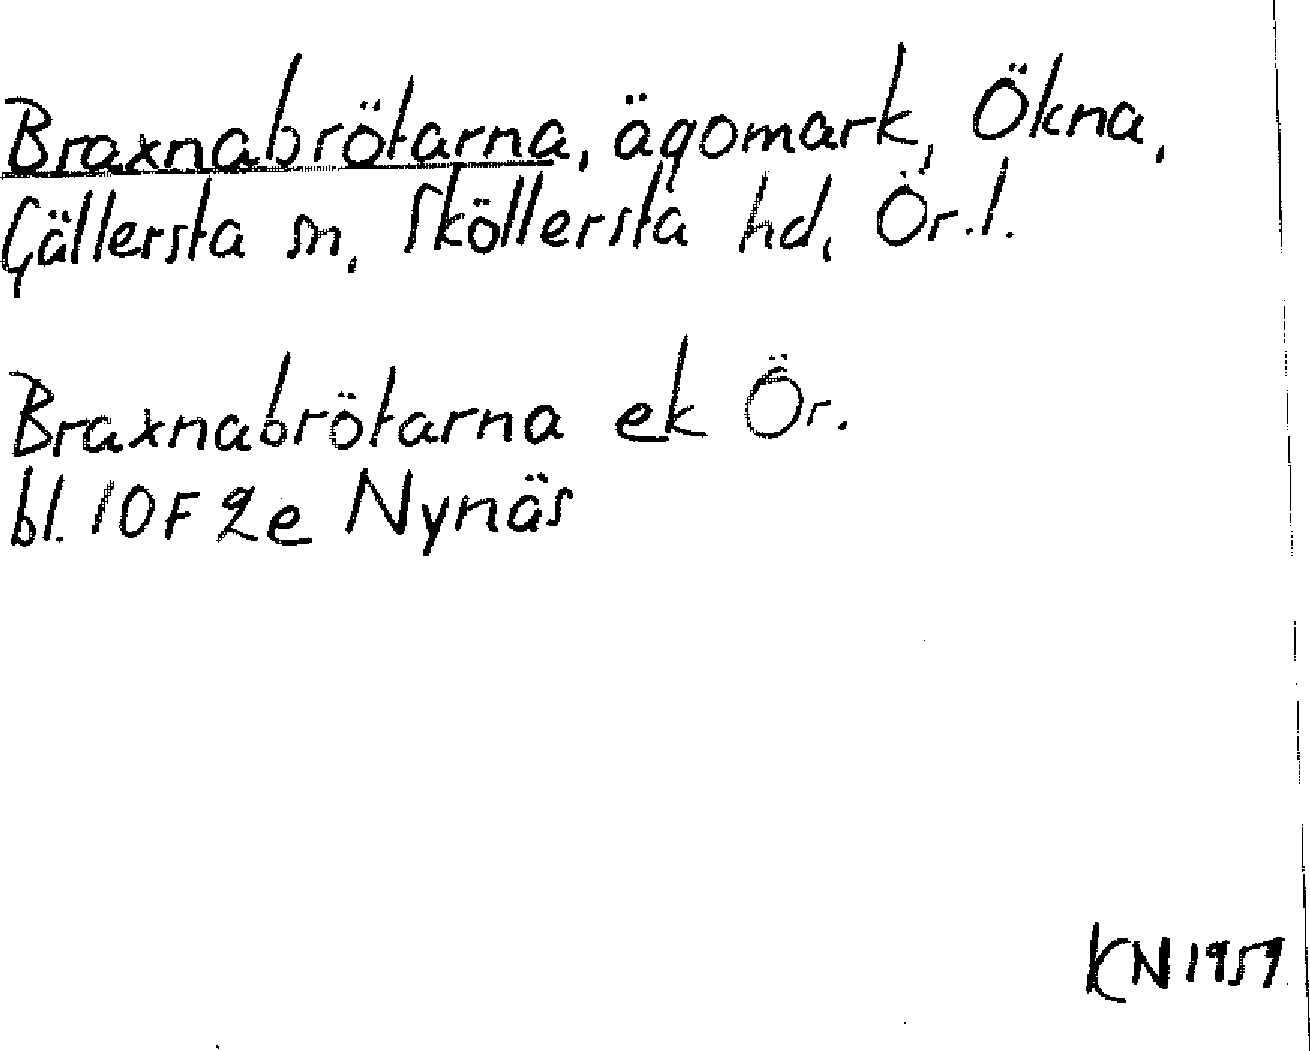 Braxnabrötarna, ägomark, Ökna,
Gällersta sn, Sköllersta hd, Ör.l.
Braxnabrötarna ek Ör.
bl. 10F 2e Nynäs
KN 1959